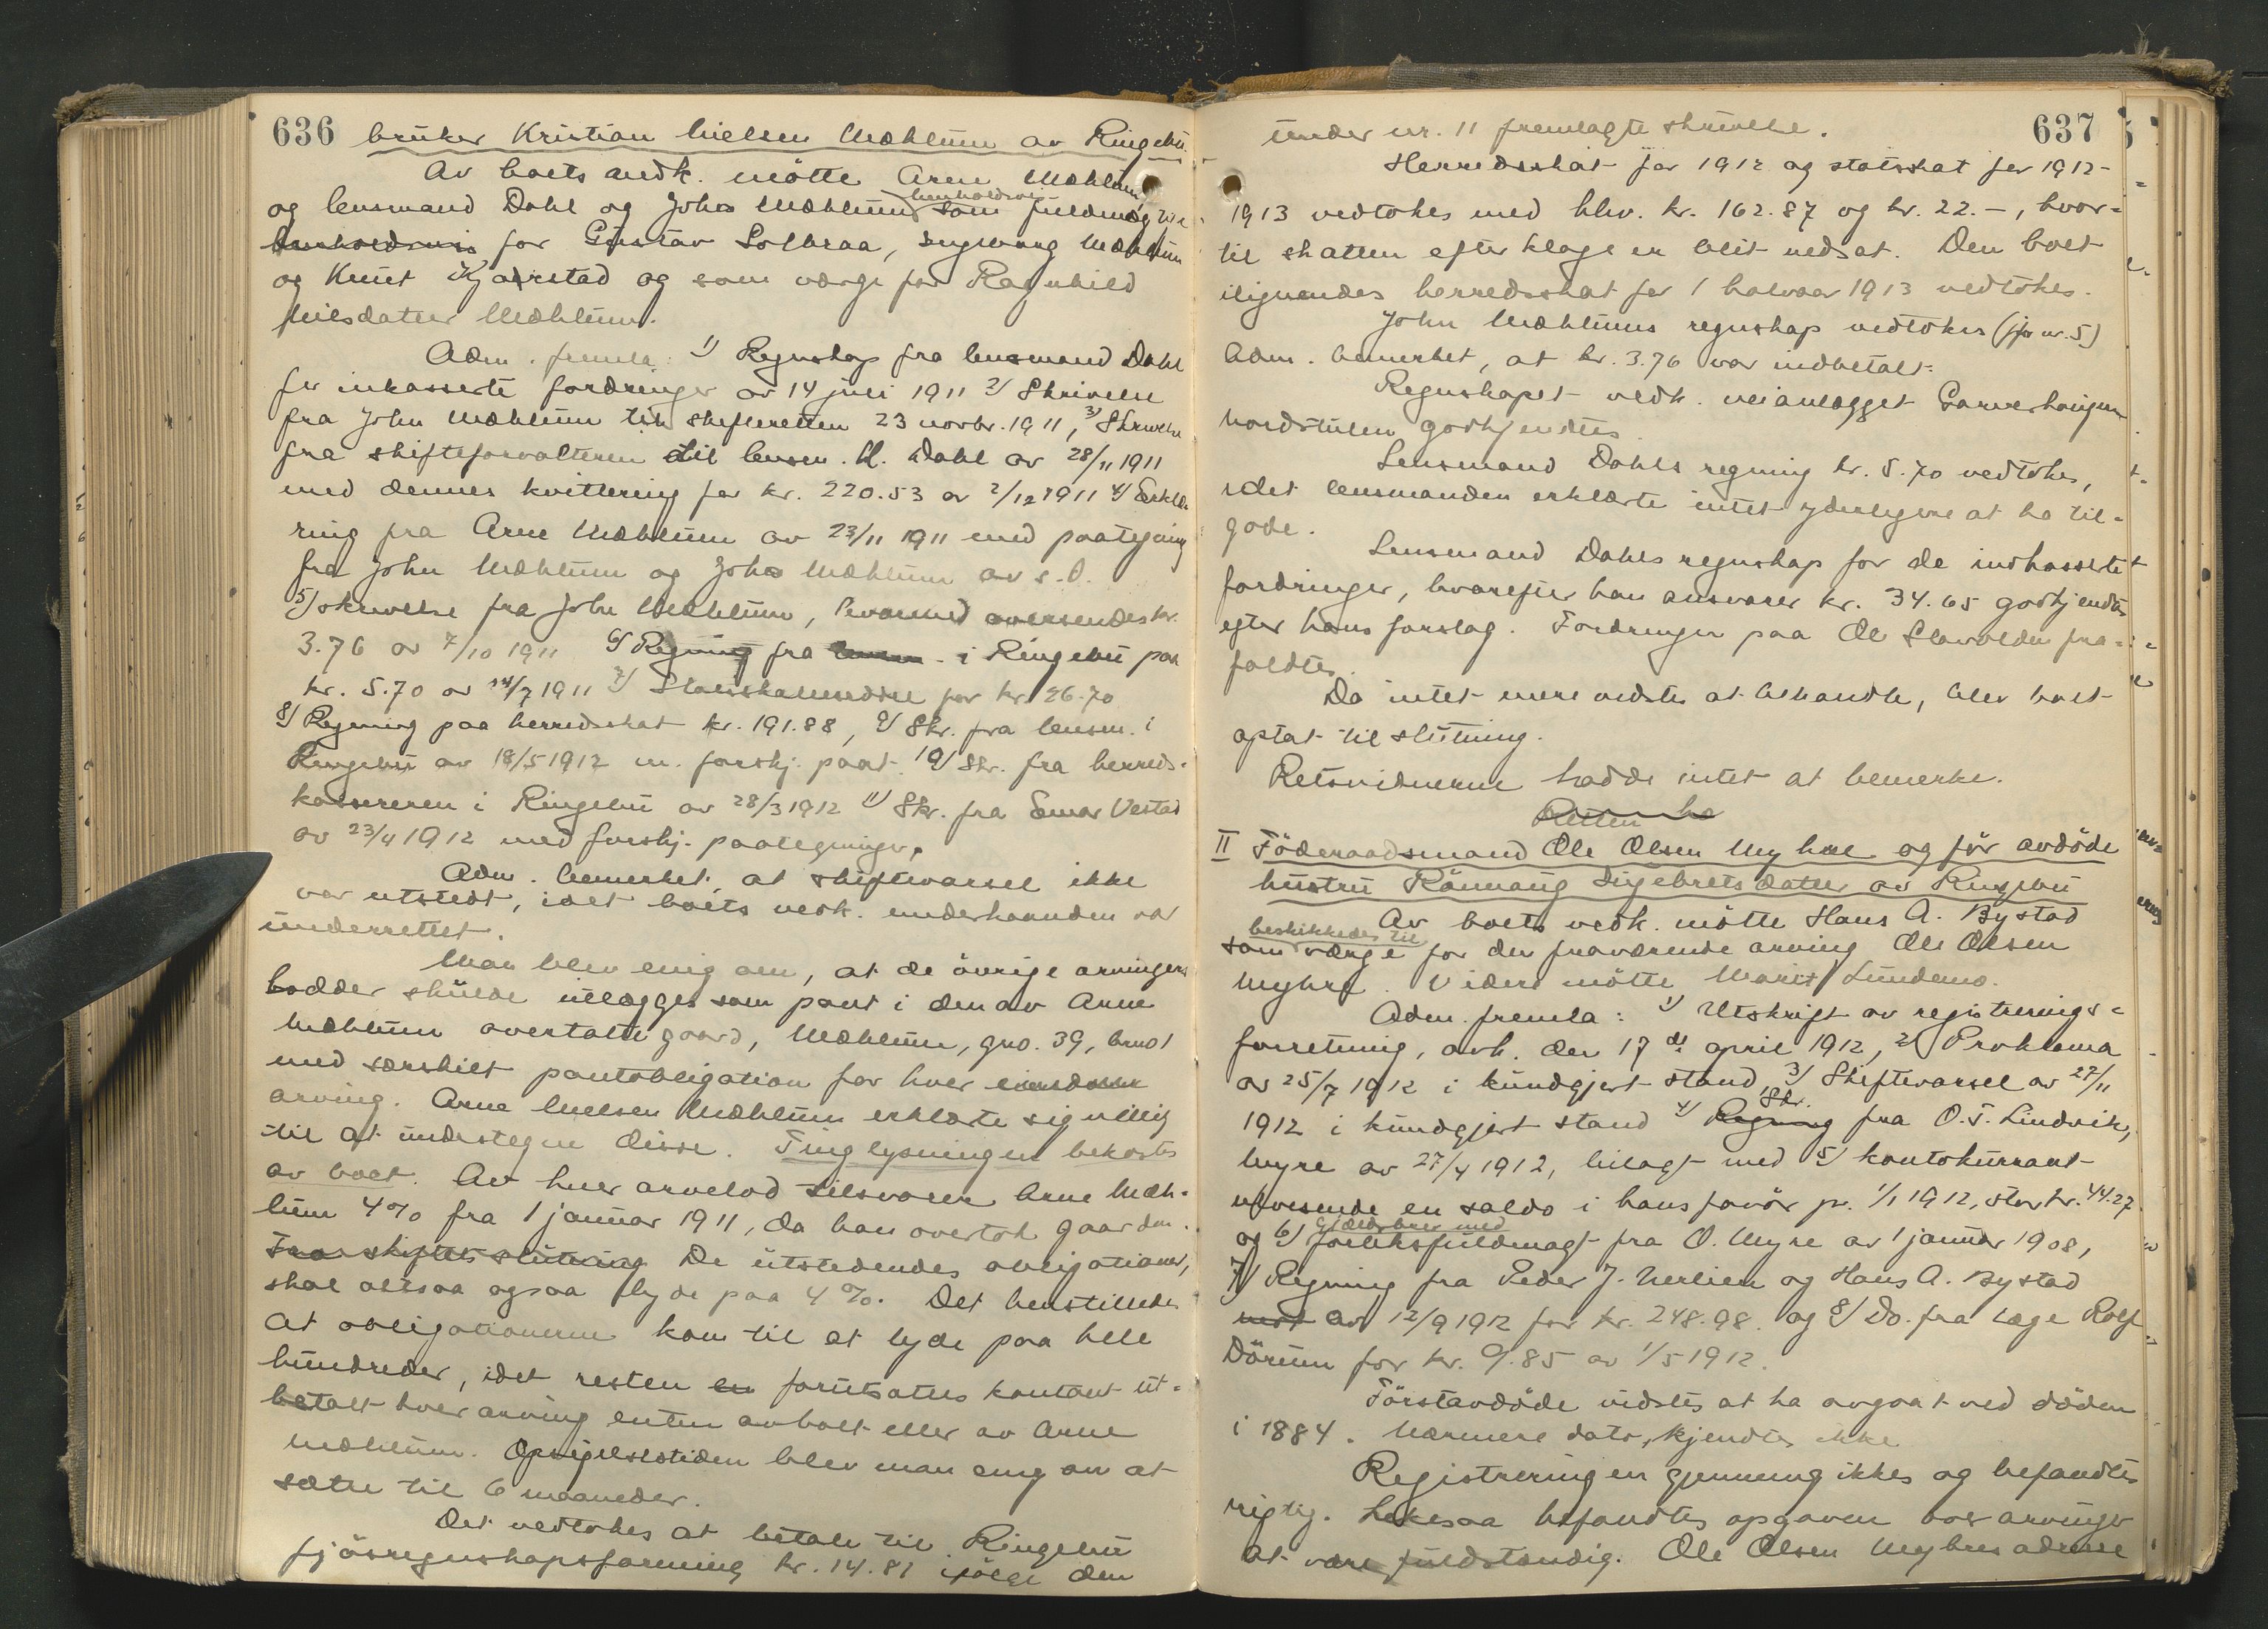 636 bruker Kristian Nielsen Mæhlum av Ringebu.
Av boets vedk. møtte Arne Mæhlum
henholdsvis
og lensmand Dahl og Johs Mæhlum som fuldmægtige
henholdsvis for Gustav Solbraa, Ingeborg Mæhlum
og Knut Kjørstad og som værge for Ragnhild
Nilsdatter Mæhlum.
Adm. fremla: 1/ Regnskap fra lensmand Dahl
for inkasserte fordringer av 14 juli 1911 2/ Skrivelse
fra John Mæhlum til skifteretten 23 novbr. 1911, 3/ Skrivelse
fra skifteforvalteren til lensm. H. Dahl av 28/11 1911
med dennes kvittering for kr. 220.53 av 2/12 1911 4/ Erklæ-
ring fra Arne Mæhlum av 23/11 1911 med paategning
fra John Mæhlum og Johs Mæhlum av s.d.
5/ skrivelse fra John Mæhlum, hvormed oversendes kr.
3.76 av 7/10 1911 6/ Regning fra lensm. i Ringebu paa
kr. 5.70 av 14/7 1911 7/ Statsskatteseddel for kr 26.70
8/ Regning paa herredsskat kr. 191.88, 9/ Skr. fra lensm. i
Ringebu av 18/5 1912 m. forskj. paat. 10/ Skr. fra herreds-
kassereren i Ringebu av 28/3 1912 11/ Skr. fra Einar Vestad
av 23/4 1912 med forskj. paategninger.
Adm. bemerket, at skiftevarsel ikke
var utstedt, idet boets vedk. underhaanden var
underrettet.
Man blev enig om, at de øvrige arvingers
lodder skulde utlægges som pant i den av Arne
Mæhlum overtatte gaard, Mæhlum, gno. 39, bruno 1
med særskilt pantobligation for hver
arving. Arne Nielsen Mæhlum erklærte sig villig
til at undertegne disse. Tinglysningen bekostes
av boet. Av hver arvelod tilsvarer Arne Mæh-
lum 4% fra 1 januar 1911, da han overtok gaarden.
Fra skiftets slutning De utstedendes obligationer,
skal altsaa ogsaa lyde paa 4%. Det henstilledes
at obligationerne kom til at lyde paa hele
hundreder, idet resten en forutsattes kontant ut-
betalt hver arving enten av boet eller av Arne
Mæhlum. Opsigelsestiden blev man enig om at
sætte til 6 maaneder.
Det vedtokes at betale til Ringebu
fjøsregnskapsforening kr. 14.81 ifølge den
637
under nr. 11 fremlagte skrivelse.
Herredsskat for 1912 og statsskat for 1912-
1913 vedtokes med hhv. kr. 162.87 og kr. 22.–, hvor-
til skatten efter klage er blit nedsat. Den boet
ilignendes herredsskat for 1 halvaar 1913 vedtokes.
John Mæhlums regnskap vedtokes (jfr nr. 5)
Adm. bemerket, at kr. 3.76 var indbetalt.
Regnskapet vedk. veianlægget Garverhaugen
nordstulen godkjendtes.
Lensmand Dahls regning kr. 5.70 vedtokes,
idet lensmanden erklærte intet yderligere at ha til-
gode.
Lensmand Dahls regnskap for de indkasserte
fordringer, hvorefter han ansvarer kr. 34.65 godkjendtes
efter hans forslag. Fordringen paa Ole fra-
faldtes.
Da intet mere vidstes at behandle, blev boet
optat til slutning.
Retsvidnerne hadde intet at bemerke.
Retten
II Føderaadsmand Ole Olsen Myhre og før avdøde
hustru Rønnaug Sigebretsdatter av Ringebu
Av boets vedk. møtte Hans A. Bystad
beskikkedes til
som værge for den fraværende arving Ole Olsen
Myhre. Videre møtte Marit Lundemo.
Adm. fremla: 1/ Utskrift av registrerings-
forretning, avh. den 17 de april 1912, 2/ Proklama
av 25/7 1912 i kundgjort stand 3/ Skiftevarsel av 27/11
Skr.
1912 i kundgjort stand 4/ Regning fra O.T. Lindvik,
Myre av 27/4 1912, bilagt med 5/ kontokurrant
utvisende en saldo i hans favør pr. 1/1 1912, stor kr. 44.27
Gjældsbrev med
og 6/ forliksfuldmagt fra O. Myre av 1 januar 1908,
7/ Regning fra Peder J. Nerlien og Hans A. Bystad
av 12/9 1912 for kr. 248.98. og 8/ Do. fra læge Rolf
Dørum for kr. 9.85 av 1/5 1912.
Førstavdøde vidstes at ha avgaat ved døden
i 1884. Nærmere dato, kjendtes ikke
Registreringen gjennemgikkes og befandtes
rigtig. Likesaa befandtes opgaven over arvinger
at være fuldstændig. Ole Olsen Myhres adresse